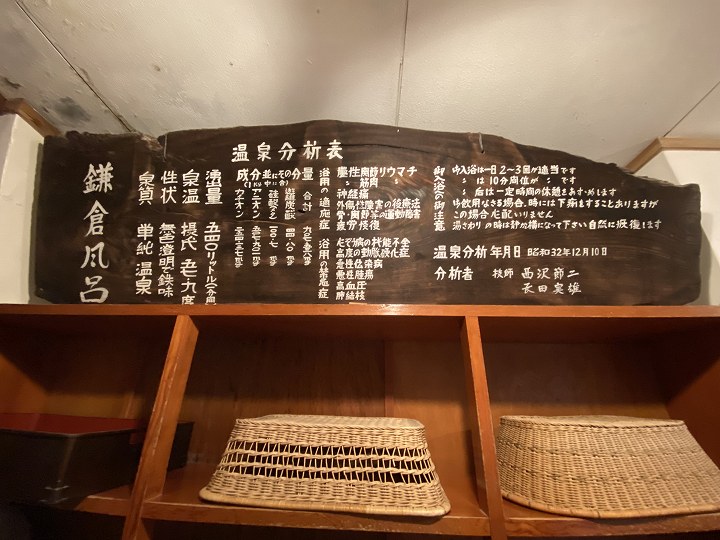 鎌倉風呂
温泉分析表
泉質 単純温泉
性状 無色澄明で鉄味
泉温 摂氏 五七九度
湧出量 五四〇リットル
成分並にその分量
カチオン
アニオン
硅酸
総計
浴用の適応症
慢性関節リウマチ
〃 筋肉 〃
神経痛
外傷性障害の後療法
骨・関節等の運動障害
疲労恢復
浴用の禁忌症
心ぞう病の代償不全
高度の動脈硬化症
急性伝染病
悪性腫瘍
高血圧
肺結核
御入浴の御注意
入浴は一日2〜3回が適当です
〃 は10分間位が 〃 です
〃 后は一定時間の休憩をおすゝめします
飲用なさる場合、時には下痢をすることありますが
この場合 心配いりません
湯ざわりの時は静かに横になって下さい自然に恢復します
温泉分析年月日 昭和32年12月10日
分析者 技師 西沢節二
長田実雄